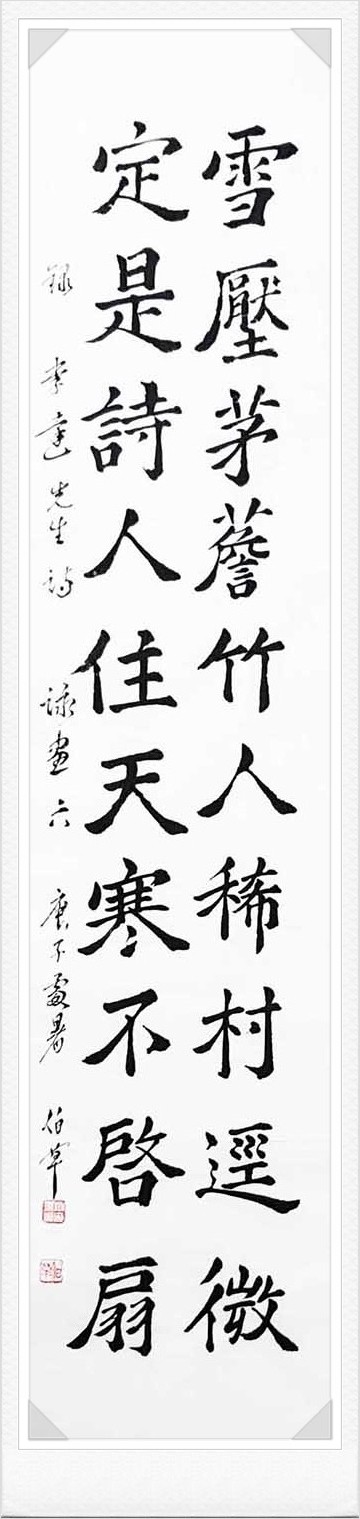 雪壓茅薝竹人稀村逕微
定是詩人住天寒不啓扇
錄 李達先生詩 詠畫六 庚子處暑 伯